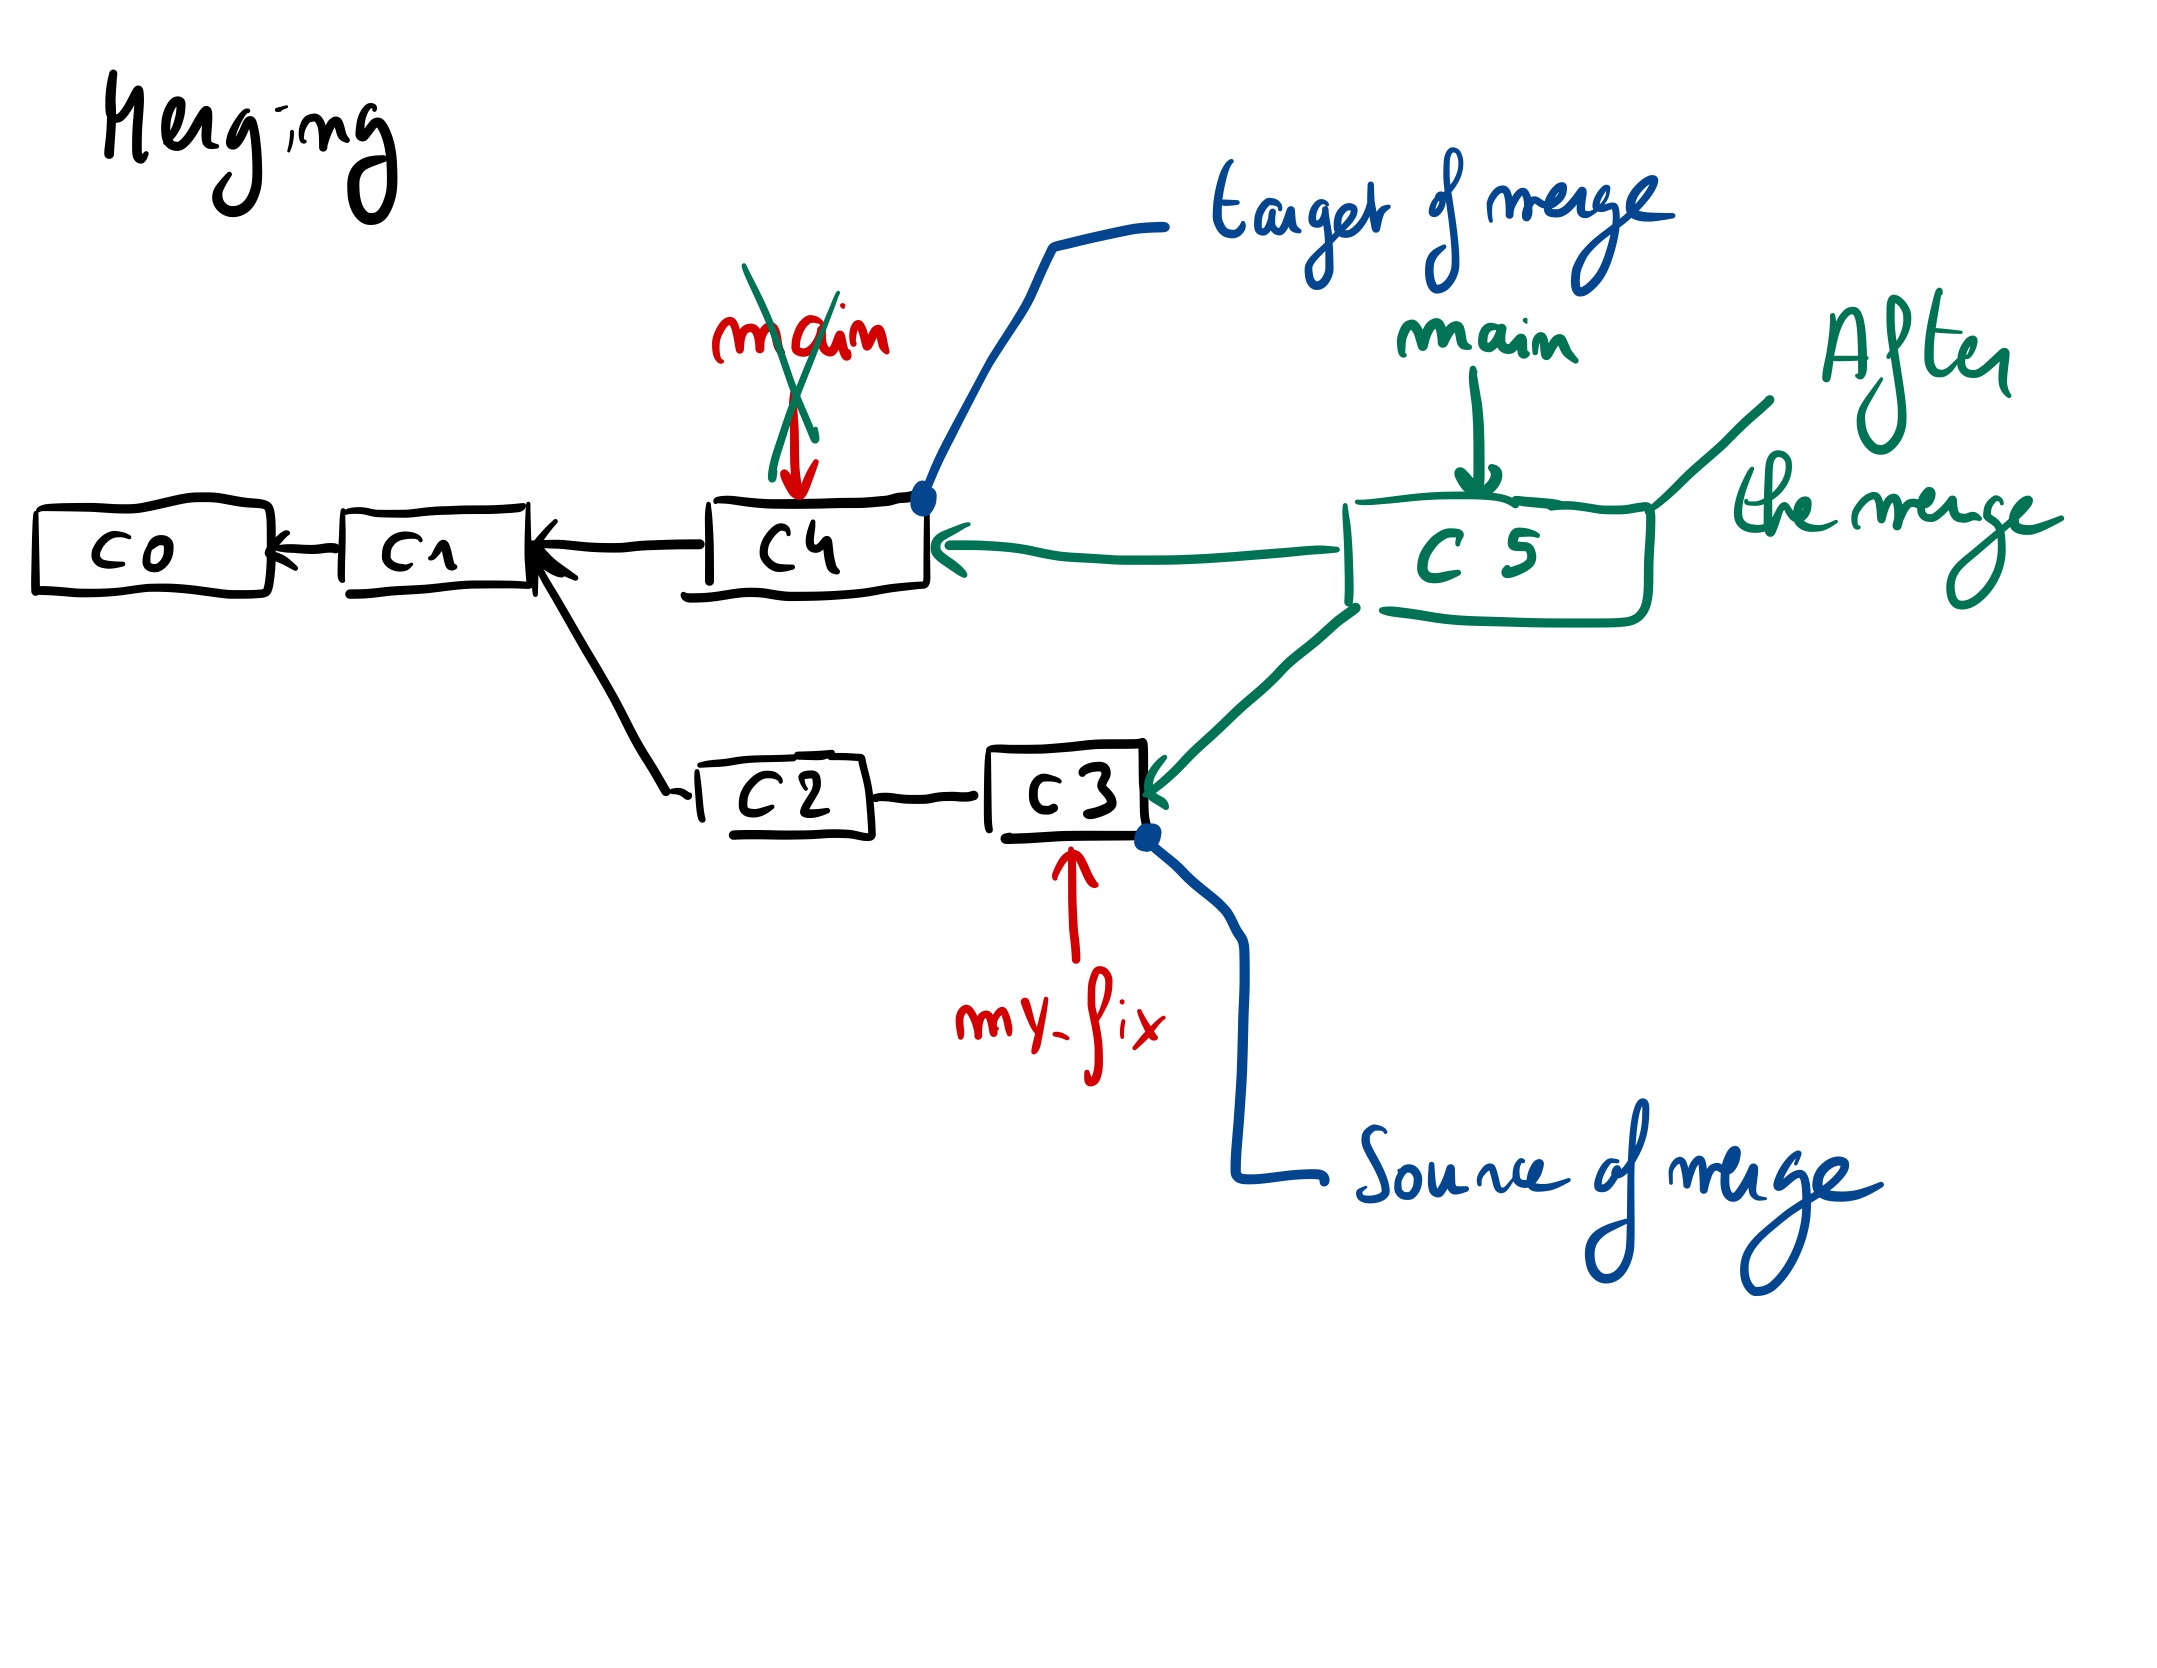 Merging
target of merge
main
main
After
the merge
C0
C1
C4
C5
C2
C3
my-fix
Source of merge